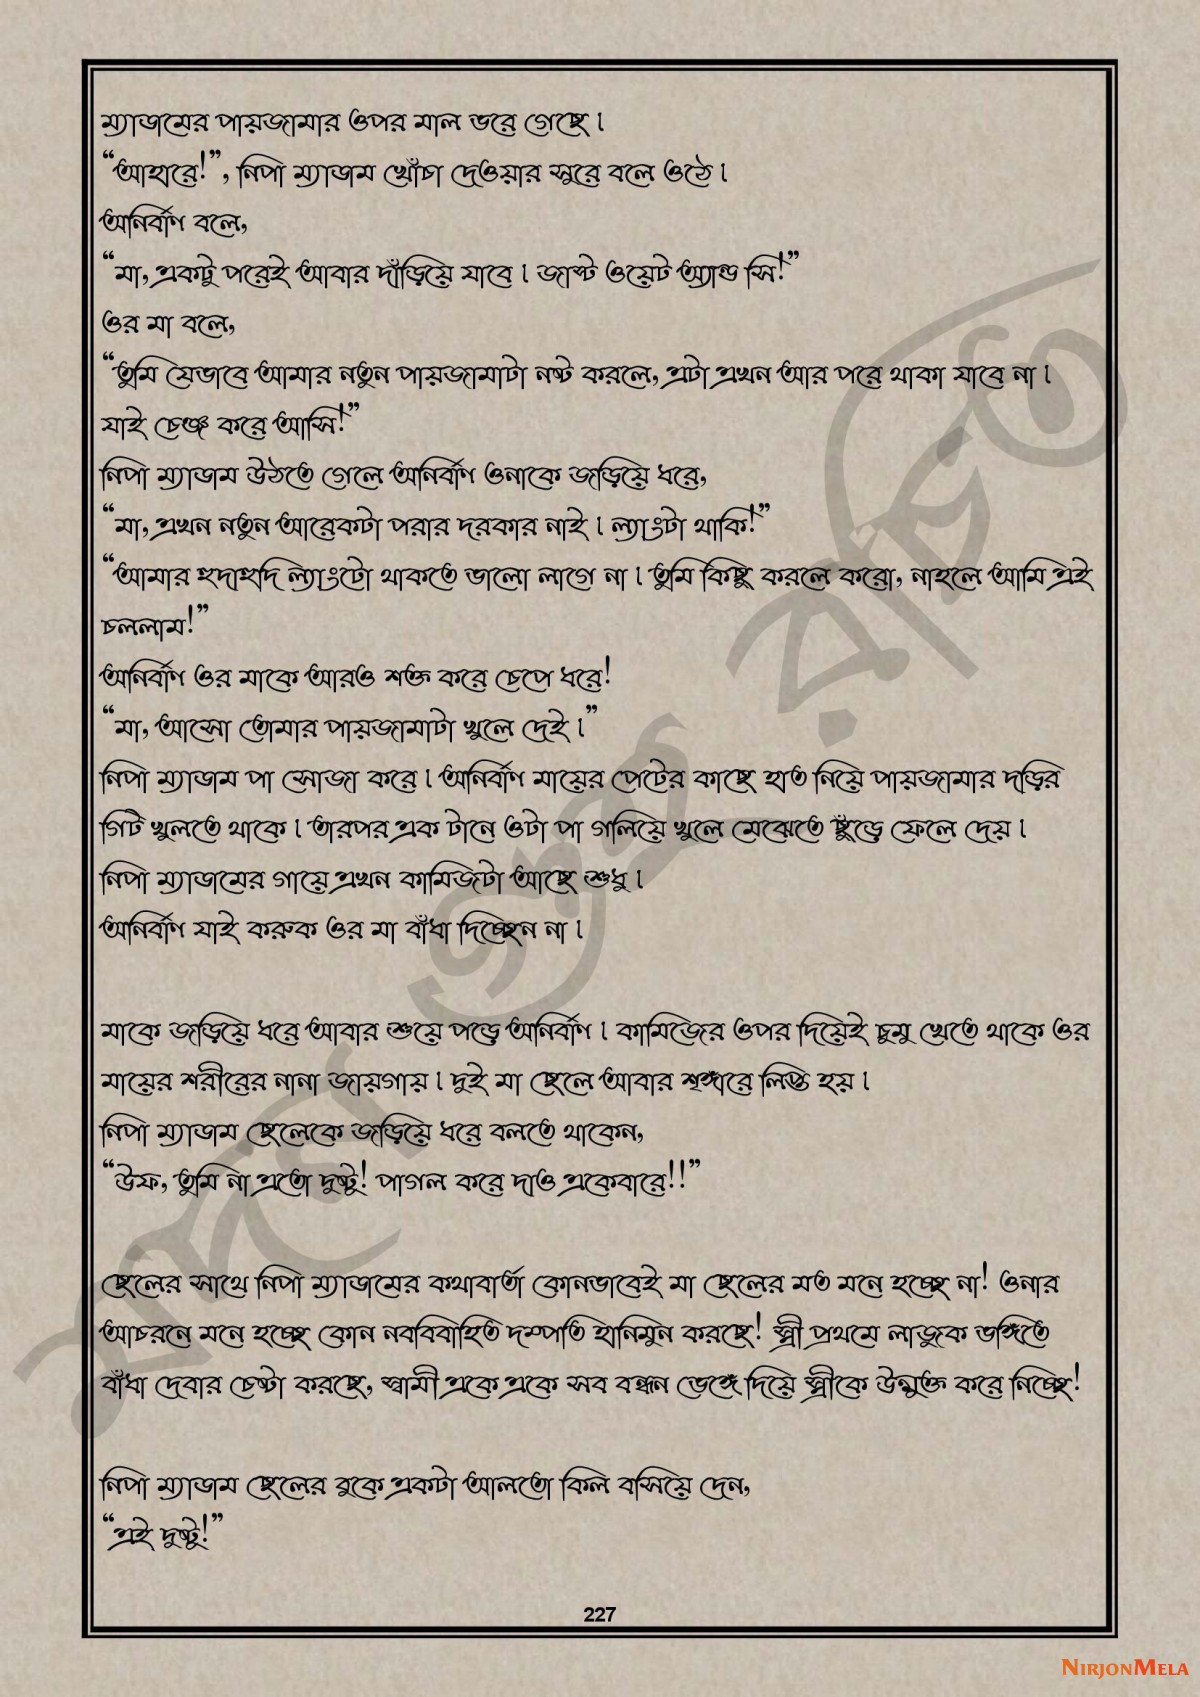 ম্যাডামের পায়জামার ওপর মাল ভরে গেছে।
“আহারে!”, নিপা ম্যাডাম খোঁচা দেওয়ার সুরে বলে ওঠে।
অনির্বাণ বলে,
“মা, একটু পরেই আবার দাঁড়িয়ে যাবে। জাস্ট ওয়েট অ্যান্ড সি!”
ওর মা বলে,
“তুমি যেভাবে আমার নতুন পায়জামাটা নষ্ট করলে, এটা এখন আর পরে থাকা যাবে না।
যাই চেঞ্জ করে আসি!”
নিপা ম্যাডাম উঠতে গেলে অনির্বাণ ওনাকে জড়িয়ে ধরে,
“মা, এখন নতুন আরেকটা পরার দরকার নাই। ল্যাংটা থাকি!”
“আমার হুদাহুদি ল্যাংটো থাকতে ভালো লাগে না। তুমি কিছু করলে করো, নাহলে আমি এই
চললাম!”
অনির্বাণ ওর মাকে আরও শক্ত করে চেপে ধরে!
“মা, আসো তোমার পায়জামাটা খুলে দেই।”
নিপা ম্যাডাম পা সোজা করে। অনির্বাণ মায়ের পেটের কাছে হাত নিয়ে পায়জামার দড়ির
গিট খুলতে থাকে। তারপর এক টানে ওটা পা গলিয়ে খুলে মেঝেতে ছুঁড়ে ফেলে দেয়।
নিপা ম্যাডামের গায়ে এখন কামিজটা আছে শুধু।
অনির্বাণ যাই করুক ওর মা বাঁধা দিচ্ছেন না।
মাকে জড়িয়ে ধরে আবার শুয়ে পড়ে অনির্বাণ। কামিজের ওপর দিয়েই চুমু খেতে থাকে ওর
মায়ের শরীরের নানা জায়গায়। দুই মা ছেলে আবার শৃঙ্গারে লিপ্ত হয়।
নিপা ম্যাডাম ছেলেকে জড়িয়ে ধরে বলতে থাকেন,
“উফ, তুমি না এতো দুষ্টু! পাগল করে দাও একেবারে!!”
ছেলের সাথে নিপা ম্যাডামের কথাবার্তা কোনভাবেই মা ছেলের মত মনে হচ্ছে না! ওনার
আচরনে মনে হচ্ছে কোন নববিবাহিত দম্পতি হানিমুন করছে! স্ত্রী প্রথমে লাজুক ভঙ্গিতে
বাঁধা দেবার চেষ্টা করছে, স্বামী একে একে সব বন্ধন ভেঙ্গে দিয়ে স্ত্রীকে উন্মুক্ত করে নিচ্ছে!
নিপা ম্যাডাম ছেলের বুকে একটা আলতো কিল বসিয়ে দেন,
“এই দুষ্টু!”
227
NIRJONMELA